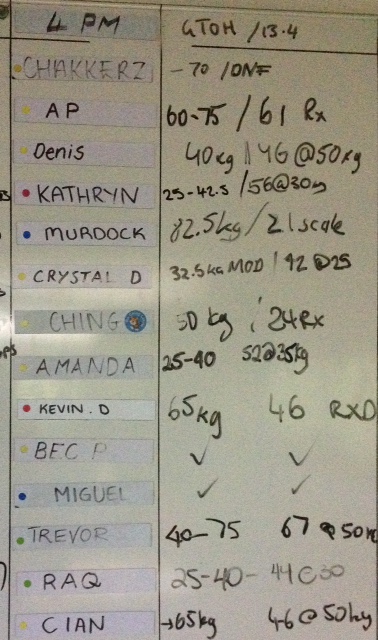 4 PM GTOH / 13.4
CHAKKERZ - 70 / DNF
AP 60-75 / 61 Rx
Denis 40kg / 46 @50kg
KATHRYN 25-42.5 / 56@30
MURDOCK 82.5kg / 21 scale
CRYSTAL D 32.5kg MOD / 42 @25
CHING 50 kg / 24 Rx
AMANDA 25-40 52@35kg
KEVIN . D 65kg 46 RXD
BEC P ✓ ✓
MIGUEL ✓ ✓
TREVOR 40-75 67 @ 50K
RAQ 25-40- 44@30
CIAN →65kg 46 @ 50kg